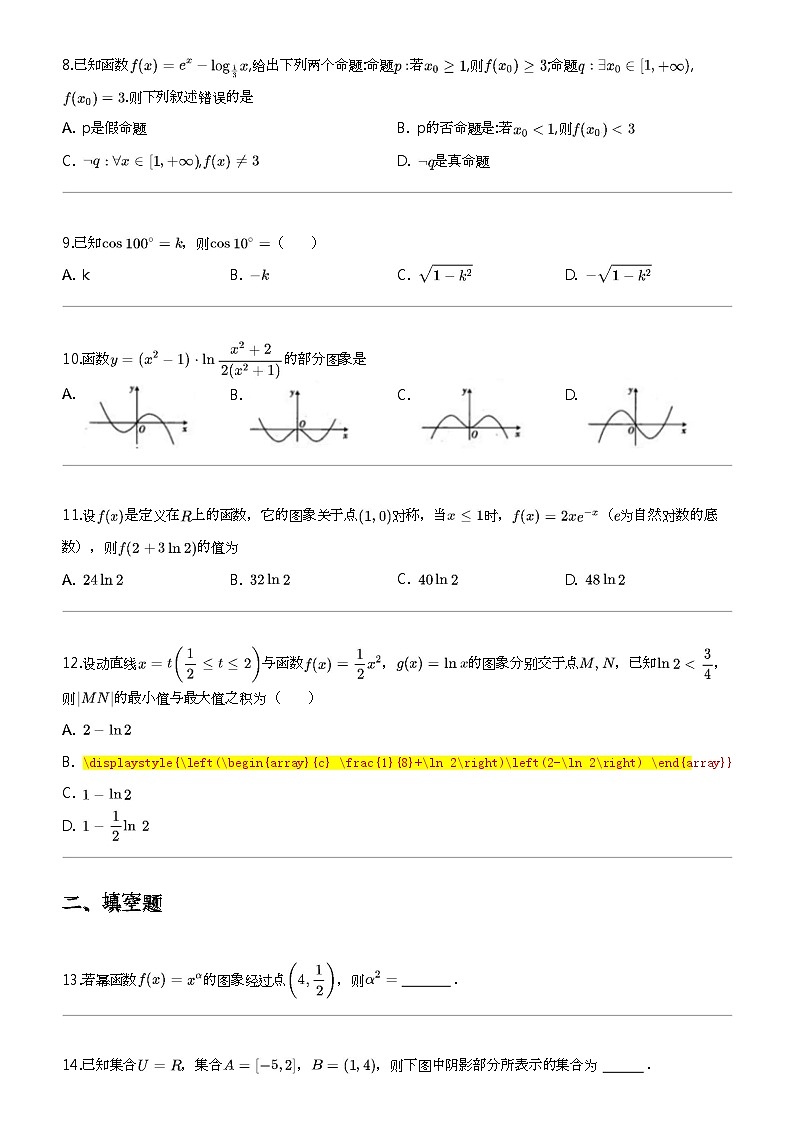 8.已知函数f(x) = e^x − log_{1/3} x,给出下列两个命题:命题p :若x₀ ≥ 1,则f(x₀) ≥ 3;命题q : ∃x₀ ∈ [1, +∞),
f(x₀) = 3.则下列叙述错误的是
A. p是假命题 B. p的否命题是:若x₀ < 1,则f(x₀) < 3
C. ¬q : ∀x ∈ [1, +∞), f(x) ≠ 3 D. ¬q是真命题
9.已知cos 100° = k，则cos 10° =（　　）
A. k B. −k C. √(1 − k²) D. −√(1 − k²)
10.函数y = (x² − 1) · ln (x² + 2)/(2(x² + 1)) 的部分图象是
A. y O x B. y O x C. y O x D. y O x
11.设f(x)是定义在R上的函数，它的图象关于点(1, 0)对称，当x ≤ 1时，f(x) = 2xe^{−x}（e为自然对数的底
数），则f(2 + 3 ln 2)的值为
A. 24 ln 2 B. 32 ln 2 C. 40 ln 2 D. 48 ln 2
12.设动直线x = t(1/2 ≤ t ≤ 2)与函数f(x) = 1/2 x²，g(x) = ln x的图象分别交于点M, N，已知ln 2 < 3/4，
则|MN|的最小值与最大值之积为（　　）
A. 2 − ln 2
B. \displaystyle{\left(\begin{array}{c} \frac{1}{8}+\ln 2\right)\left(2-\ln 2\right) \end{array}}
C. 1 − ln 2
D. 1 − 1/2 ln 2
二、填空题
13.若幂函数f(x) = x^α的图象经过点(4, 1/2)，则α² = ______．
14.已知集合U = R，集合A = [−5, 2]，B = (1, 4)，则下图中阴影部分所表示的集合为 _____．